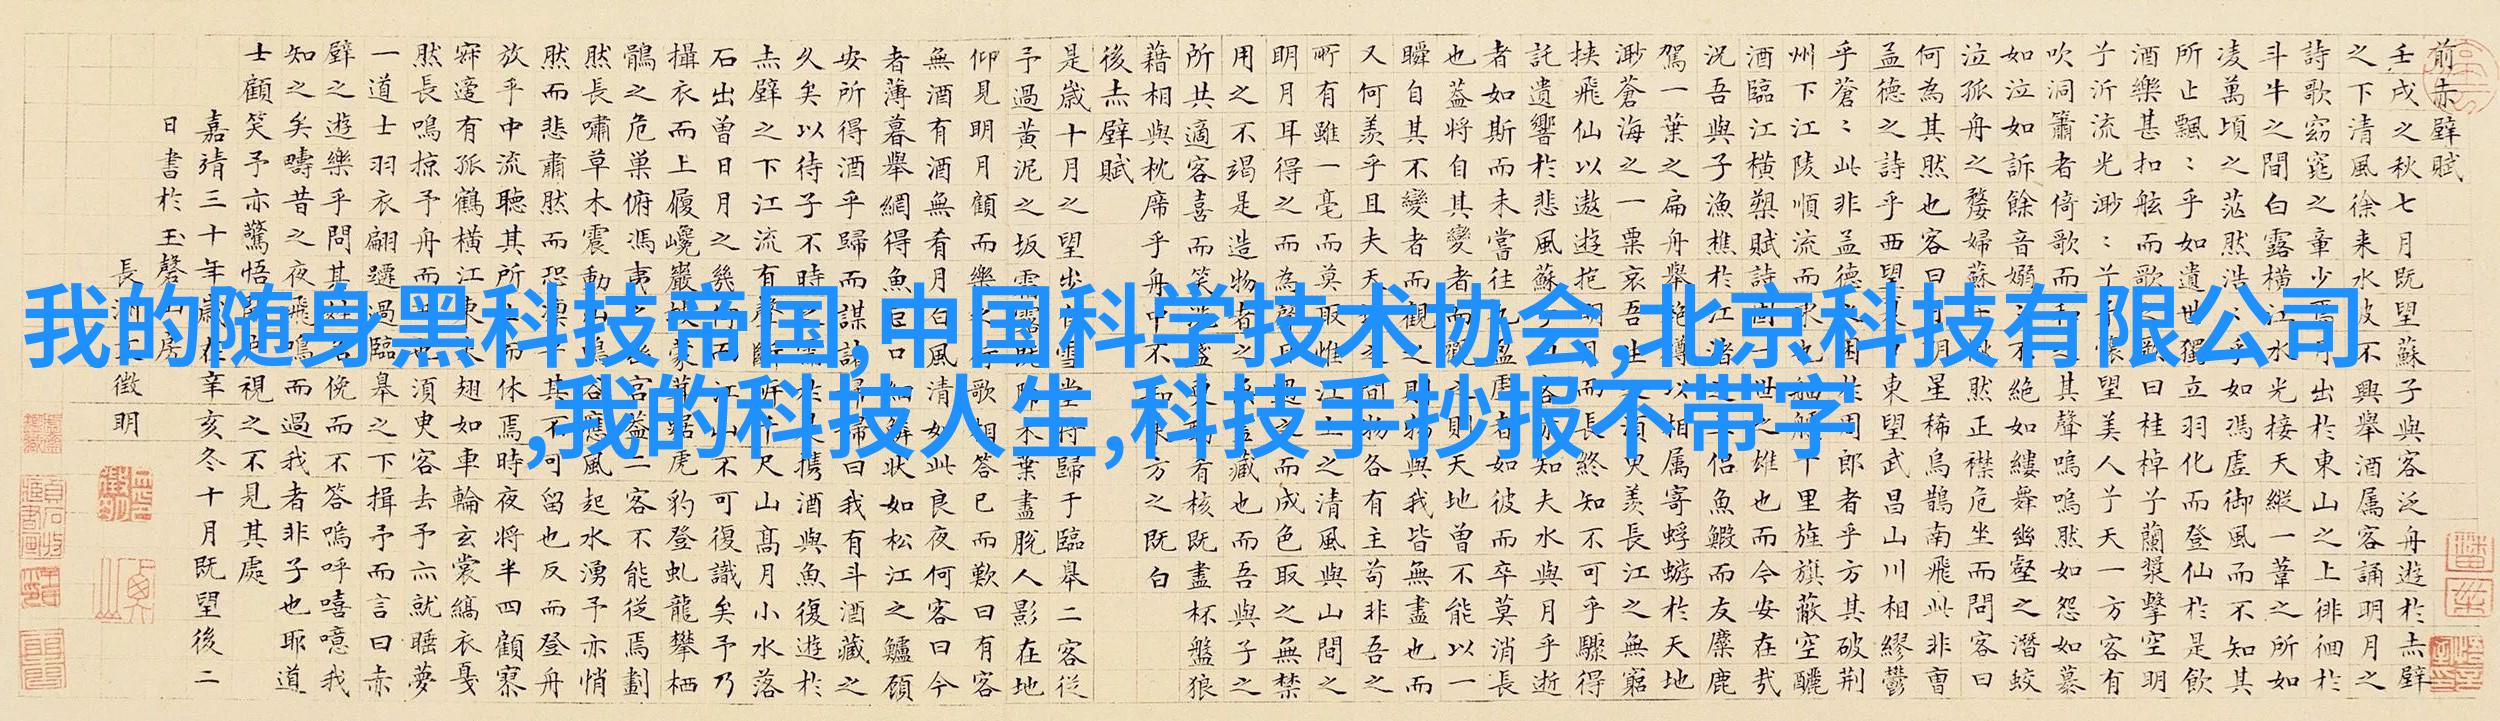 前赤壁賦
壬戌之秋七月既望蘇子與客泛舟遊於赤壁
之下清風徐来水波不興舉酒属客誦明月之
詩歌窈窕之章少焉月出於東山之上徘徊於
斗牛之間白露横江水光接天縱一葦之所如
凌萬頃之茫然浩〻乎如馮虚御風而不知其
所止飄〻乎如遺世獨立羽化而登仙於是飲
酒樂甚扣舷而歌之歌曰桂棹兮蘭槳擊空明
兮泝流光渺〻兮予懷望美人兮天一方客有
吹洞簫者倚歌而和之其聲嗚嗚然如怨如慕
如泣如訴餘音嫋〻不絶如縷舞幽壑之潜蛟
泣孤舟之嫠婦蘇子愀然正襟危坐而問客曰
何為其然也客曰月明星稀烏鵲南飛此非曹
孟德之詩乎西望夏口東望武昌山川相繆鬱
乎蒼〻此非孟德之困於周郎者乎方其破荆
州下江陵順流而東也舳艫千里旌旗蔽空釃
酒臨江横槊賦詩固一世之雄也而今安在哉
况吾與子漁樵於江渚之上侣魚鰕而友麋鹿
駕一葉之扁舟舉匏樽以相属寄蜉蝣於天地
渺蒼海之一粟哀吾生之須臾羡長江之無窮
挟飛仙以遨遊抱明月而長終知不可乎驟得
託遺響於悲風蘇子曰客亦知夫水與月乎逝
者如斯而未嘗往也盈虚者如彼而卒莫消長
也盖將自其變者而觀之則天地曾不能以一
瞬自其不變者而觀之則物與我皆無盡也而
又何羡乎且夫天地之間物各有主苟非吾之
所有雖一毫而莫取惟江上之清風與山間之
明月耳得之而為聲目遇之而成色取之無禁
用之不竭是造物者之無盡藏也而吾與子之
所共適客喜而笑洗盞更酌肴核既盡杯盤狼
藉相與枕席乎舟中不知東方之既白
後赤壁賦
是歲十月之望步自雪堂將歸于臨皋二客從
予過黄泥之坂霜露既降木葉盡脱人影在地
仰見明月顧而樂之行歌相答已而歎曰有客
無酒有酒無肴月白風清如此良夜何客曰今
者薄暮舉網得魚巨口細鱗状如松江之鱸顧
安所得酒乎歸而謀諸婦婦曰我有斗酒藏之
久矣以待子不時之需於是攜酒與魚復遊於
赤壁之下江流有聲斷岸千尺山髙月小水落
石出曾日月之幾何而江山不可復識矣予乃
攝衣而上履巉巖披蒙茸踞虎豹登虬龍攀栖
鶻之危巢俯馮夷之幽宫盖二客不能從焉劃
然長嘯草木震動山鳴谷應風起水湧予亦悄
然而悲肅然而恐凜乎其不可留也反而登舟
放乎中流聴其所止而休焉時夜將半四顧寂
寥適有孤鶴横江東来翅如車輪玄裳縞衣戛
然長鳴掠予舟而西也須臾客去予亦就睡夢
一道士羽衣翩躚過臨皋之下揖予而言曰赤
壁之遊樂乎問其姓名俛而不答嗚呼嘻噫我
知之矣疇昔之夜飛鳴而過我者非子也耶道
士顧笑予亦驚悟開户視之不見其處
嘉靖三十年歲在辛亥冬十月既望後二
日書於玉磬山房
長洲文徵明
我的随身黑科技帝国,中国科学技术协会,北京科技有限公司
,我的科技人生,科技手抄报不带字